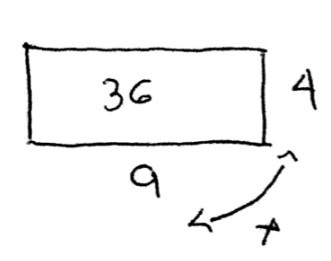 36
4
9
+